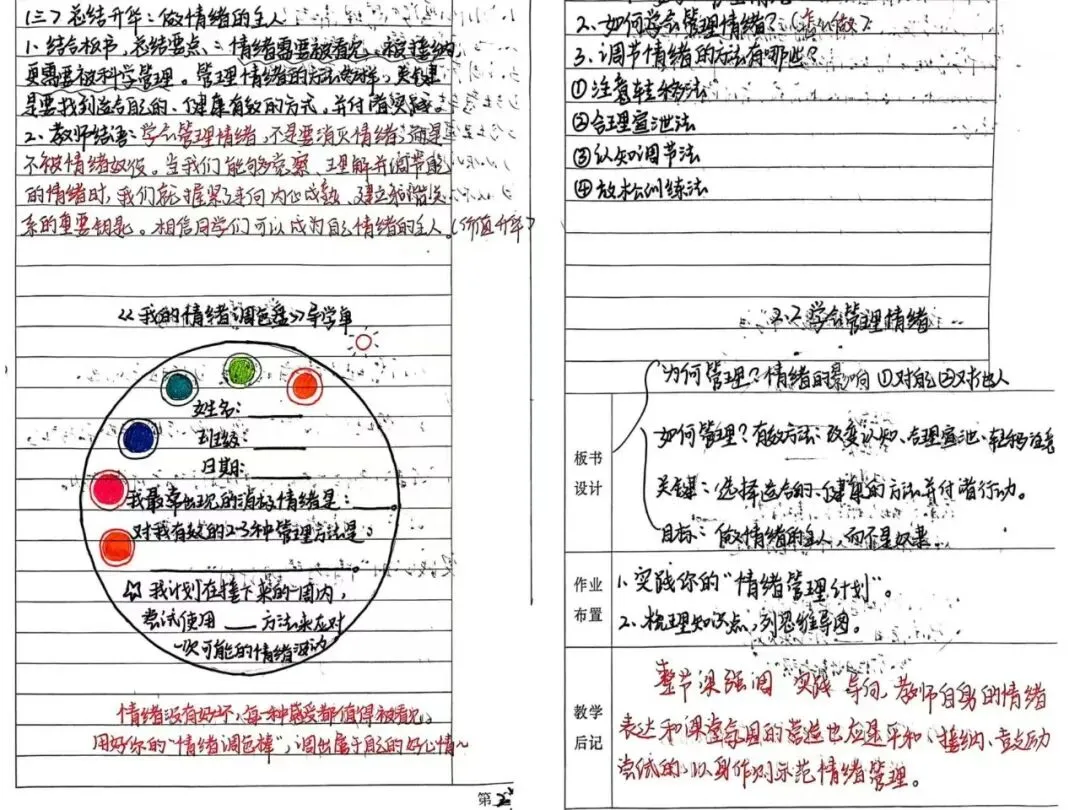 (三)总结升华:做情绪的主人
1、结合板书,总结要点:情绪需要被看见、被接纳
更需要被科学管理。管理情绪的方法多样,关键
是要找到适合自己的、健康有效的方式,并付诸实践。
2、教师结语:学会管理情绪,不是要消灭情绪,而是
不被情绪奴役。当我们能够觉察、理解并调节自己
的情绪时,我们就握紧了走向内心成熟、建立和谐关
系的重要钥匙。相信同学们可以成为自己情绪的主人。(价值升华)
《我的情绪调色盘》导学单
姓名:
班级:
日期:
我最常出现的消极情绪是:
对我有效的2-3种管理方法是:
我计划在接下来的一周内,
尝试使用 方法来应对
一次可能的情绪波动
情绪没有好坏,每一种感受都值得被看见。
用好你的"情绪调色棒",调出属于自己的好心情~
第2
2、如何学会管理情绪?(怎么做)
3、调节情绪的方法有哪些?
①注意转移法
②合理宣泄法
③认知调节法
④放松训练法
2.2 学会管理情绪
为何管理?情绪的影响 ①对自己 ②对他人
板书设计
如何管理?有效方法:改变认知、合理宣泄、转移注意
关键:选择适合的、健康的方法并付诸行动。
目标:做情绪的主人,而不是奴隶
作业布置
1、实践你的"情绪管理计划"。
2、梳理知识点,列思维导图。
教学后记
整节课强调"实践"导向,教师自身的情绪
表达和课堂氛围的营造也应是平和、接纳、鼓励
尝试的,以身作则示范情绪管理。